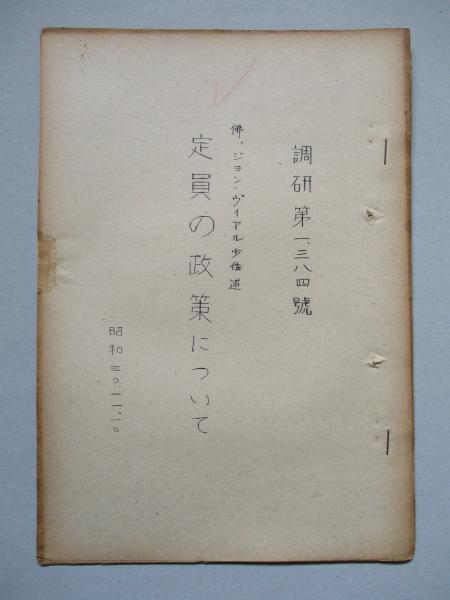 調研第一、三八四號
佛、ジョン・ヴィアル少佐述
定員の政策について
昭和三〇.一一.一〇